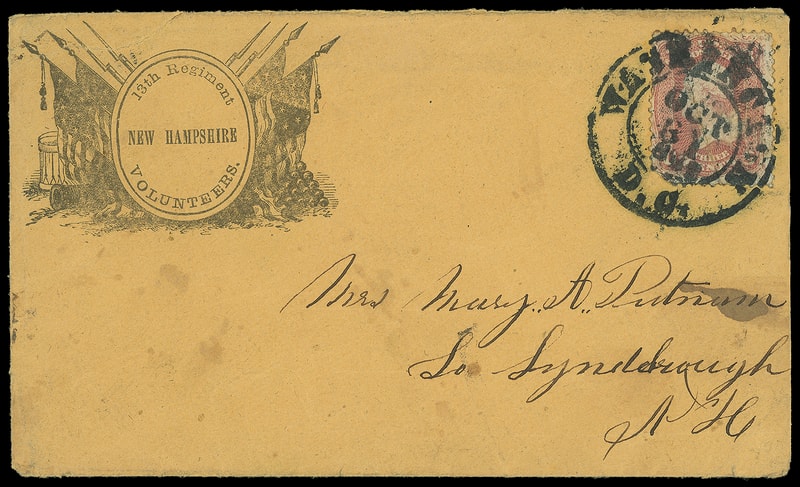 13th Regiment
NEW HAMPSHIRE
VOLUNTEERS.
WASHINGTON
OCT
D.C.
Mrs Mary, A, Putnam
So Lyndeborough
N H